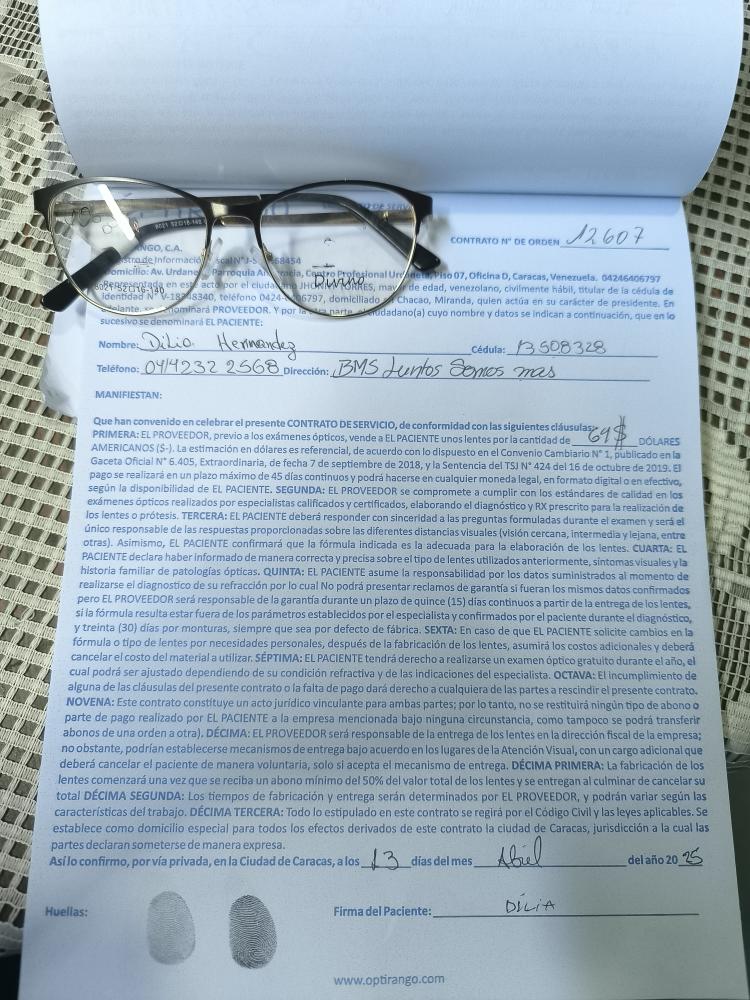 CONTRATO N° DE ORDEN 12607
ANGO, C.A.
8021 52□16-140
8021 52□16-140
Divino
domicilio: Av. Urdane Parroquia An Centro Profesional Urdaneta, Piso 07, Oficina D, Caracas, Venezuela. 04246406797
Representada en este acto por el ciudadano mayor de edad, venezolano, civilmente hábil, titular de la cédula de
identidad N° teléfono 0424- 06797, domiciliado Chacao, Miranda, quien actúa en su carácter de presidente. En
adelante, se denominará PROVEEDOR. Y por la otra parte, el ciudadano(a) cuyo nombre y datos se indican a continuación, que en lo
sucesivo se denominará EL PACIENTE:
Nombre: Dilia Hernandez Cédula: 13508328
Teléfono: 04142322568 Dirección: BMS Juntos Somos mas
MANIFIESTAN:
Que han convenido en celebrar el presente CONTRATO DE SERVICIO, de conformidad con las siguientes cláusulas:
PRIMERA: EL PROVEEDOR, previo a los exámenes ópticos, vende a EL PACIENTE unos lentes por la cantidad de 69$ DÓLARES
AMERICANOS ($-). La estimación en dólares es referencial, de acuerdo con lo dispuesto en el Convenio Cambiario N° 1, publicado en la
Gaceta Oficial N° 6.405, Extraordinaria, de fecha 7 de septiembre de 2018, y la Sentencia del TSJ N° 424 del 16 de octubre de 2019. El
pago se realizará en un plazo máximo de 45 días continuos y podrá hacerse en cualquier moneda legal, en formato digital o en efectivo,
según la disponibilidad de EL PACIENTE. SEGUNDA: EL PROVEEDOR se compromete a cumplir con los estándares de calidad en los
exámenes ópticos realizados por especialistas calificados y certificados, elaborando el diagnóstico y RX prescrito para la realización de
los lentes o prótesis. TERCERA: EL PACIENTE deberá responder con sinceridad a las preguntas formuladas durante el examen y será el
único responsable de las respuestas proporcionadas sobre las diferentes distancias visuales (visión cercana, intermedia y lejana, entre
otras). Asimismo, EL PACIENTE confirmará que la fórmula indicada es la adecuada para la elaboración de los lentes. CUARTA: EL
PACIENTE declara haber informado de manera correcta y precisa sobre el tipo de lentes utilizados anteriormente, síntomas visuales y la
historia familiar de patologías ópticas. QUINTA: EL PACIENTE asume la responsabilidad por los datos suministrados al momento de
realizarse el diagnostico de su refracción por lo cual No podrá presentar reclamos de garantía si fueran los mismos datos confirmados
pero EL PROVEEDOR será responsable de la garantía durante un plazo de quince (15) días continuos a partir de la entrega de los lentes,
si la fórmula resulta estar fuera de los parámetros establecidos por el especialista y confirmados por el paciente durante el diagnóstico,
y treinta (30) días por monturas, siempre que sea por defecto de fábrica. SEXTA: En caso de que EL PACIENTE solicite cambios en la
fórmula o tipo de lentes por necesidades personales, después de la fabricación de los lentes, asumirá los costos adicionales y deberá
cancelar el costo del material a utilizar. SÉPTIMA: EL PACIENTE tendrá derecho a realizarse un examen óptico gratuito durante el año, el
cual podrá ser ajustado dependiendo de su condición refractiva y de las indicaciones del especialista. OCTAVA: El incumplimiento de
alguna de las cláusulas del presente contrato o la falta de pago dará derecho a cualquiera de las partes a rescindir el presente contrato.
NOVENA: Este contrato constituye un acto jurídico vinculante para ambas partes; por lo tanto, no se restituirá ningún tipo de abono o
parte de pago realizado por EL PACIENTE a la empresa mencionada bajo ninguna circunstancia, como tampoco se podrá transferir
abonos de una orden a otra). DÉCIMA: EL PROVEEDOR será responsable de la entrega de los lentes en la dirección fiscal de la empresa;
no obstante, podrían establecerse mecanismos de entrega bajo acuerdo en los lugares de la Atención Visual, con un cargo adicional que
deberá cancelar el paciente de manera voluntaria, solo si acepta el mecanismo de entrega. DÉCIMA PRIMERA: La fabricación de los
lentes comenzará una vez que se reciba un abono mínimo del 50% del valor total de los lentes y se entregan al culminar de cancelar su
total DÉCIMA SEGUNDA: Los tiempos de fabricación y entrega serán determinados por EL PROVEEDOR, y podrán variar según las
características del trabajo. DÉCIMA TERCERA: Todo lo estipulado en este contrato se regirá por el Código Civil y las leyes aplicables. Se
establece como domicilio especial para todos los efectos derivados de este contrato la ciudad de Caracas, jurisdicción a la cual las
partes declaran someterse de manera expresa.
Así lo confirmo, por vía privada, en la Ciudad de Caracas, a los 13 días del mes Abril del año 2025
Huellas: Firma del Paciente: DILIA
www.optirango.com